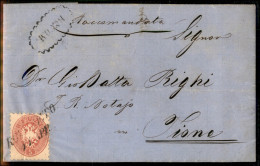 Raccomandata
Signor
Dr Gio Batta Righi
I. R. Notajo
in
Tione